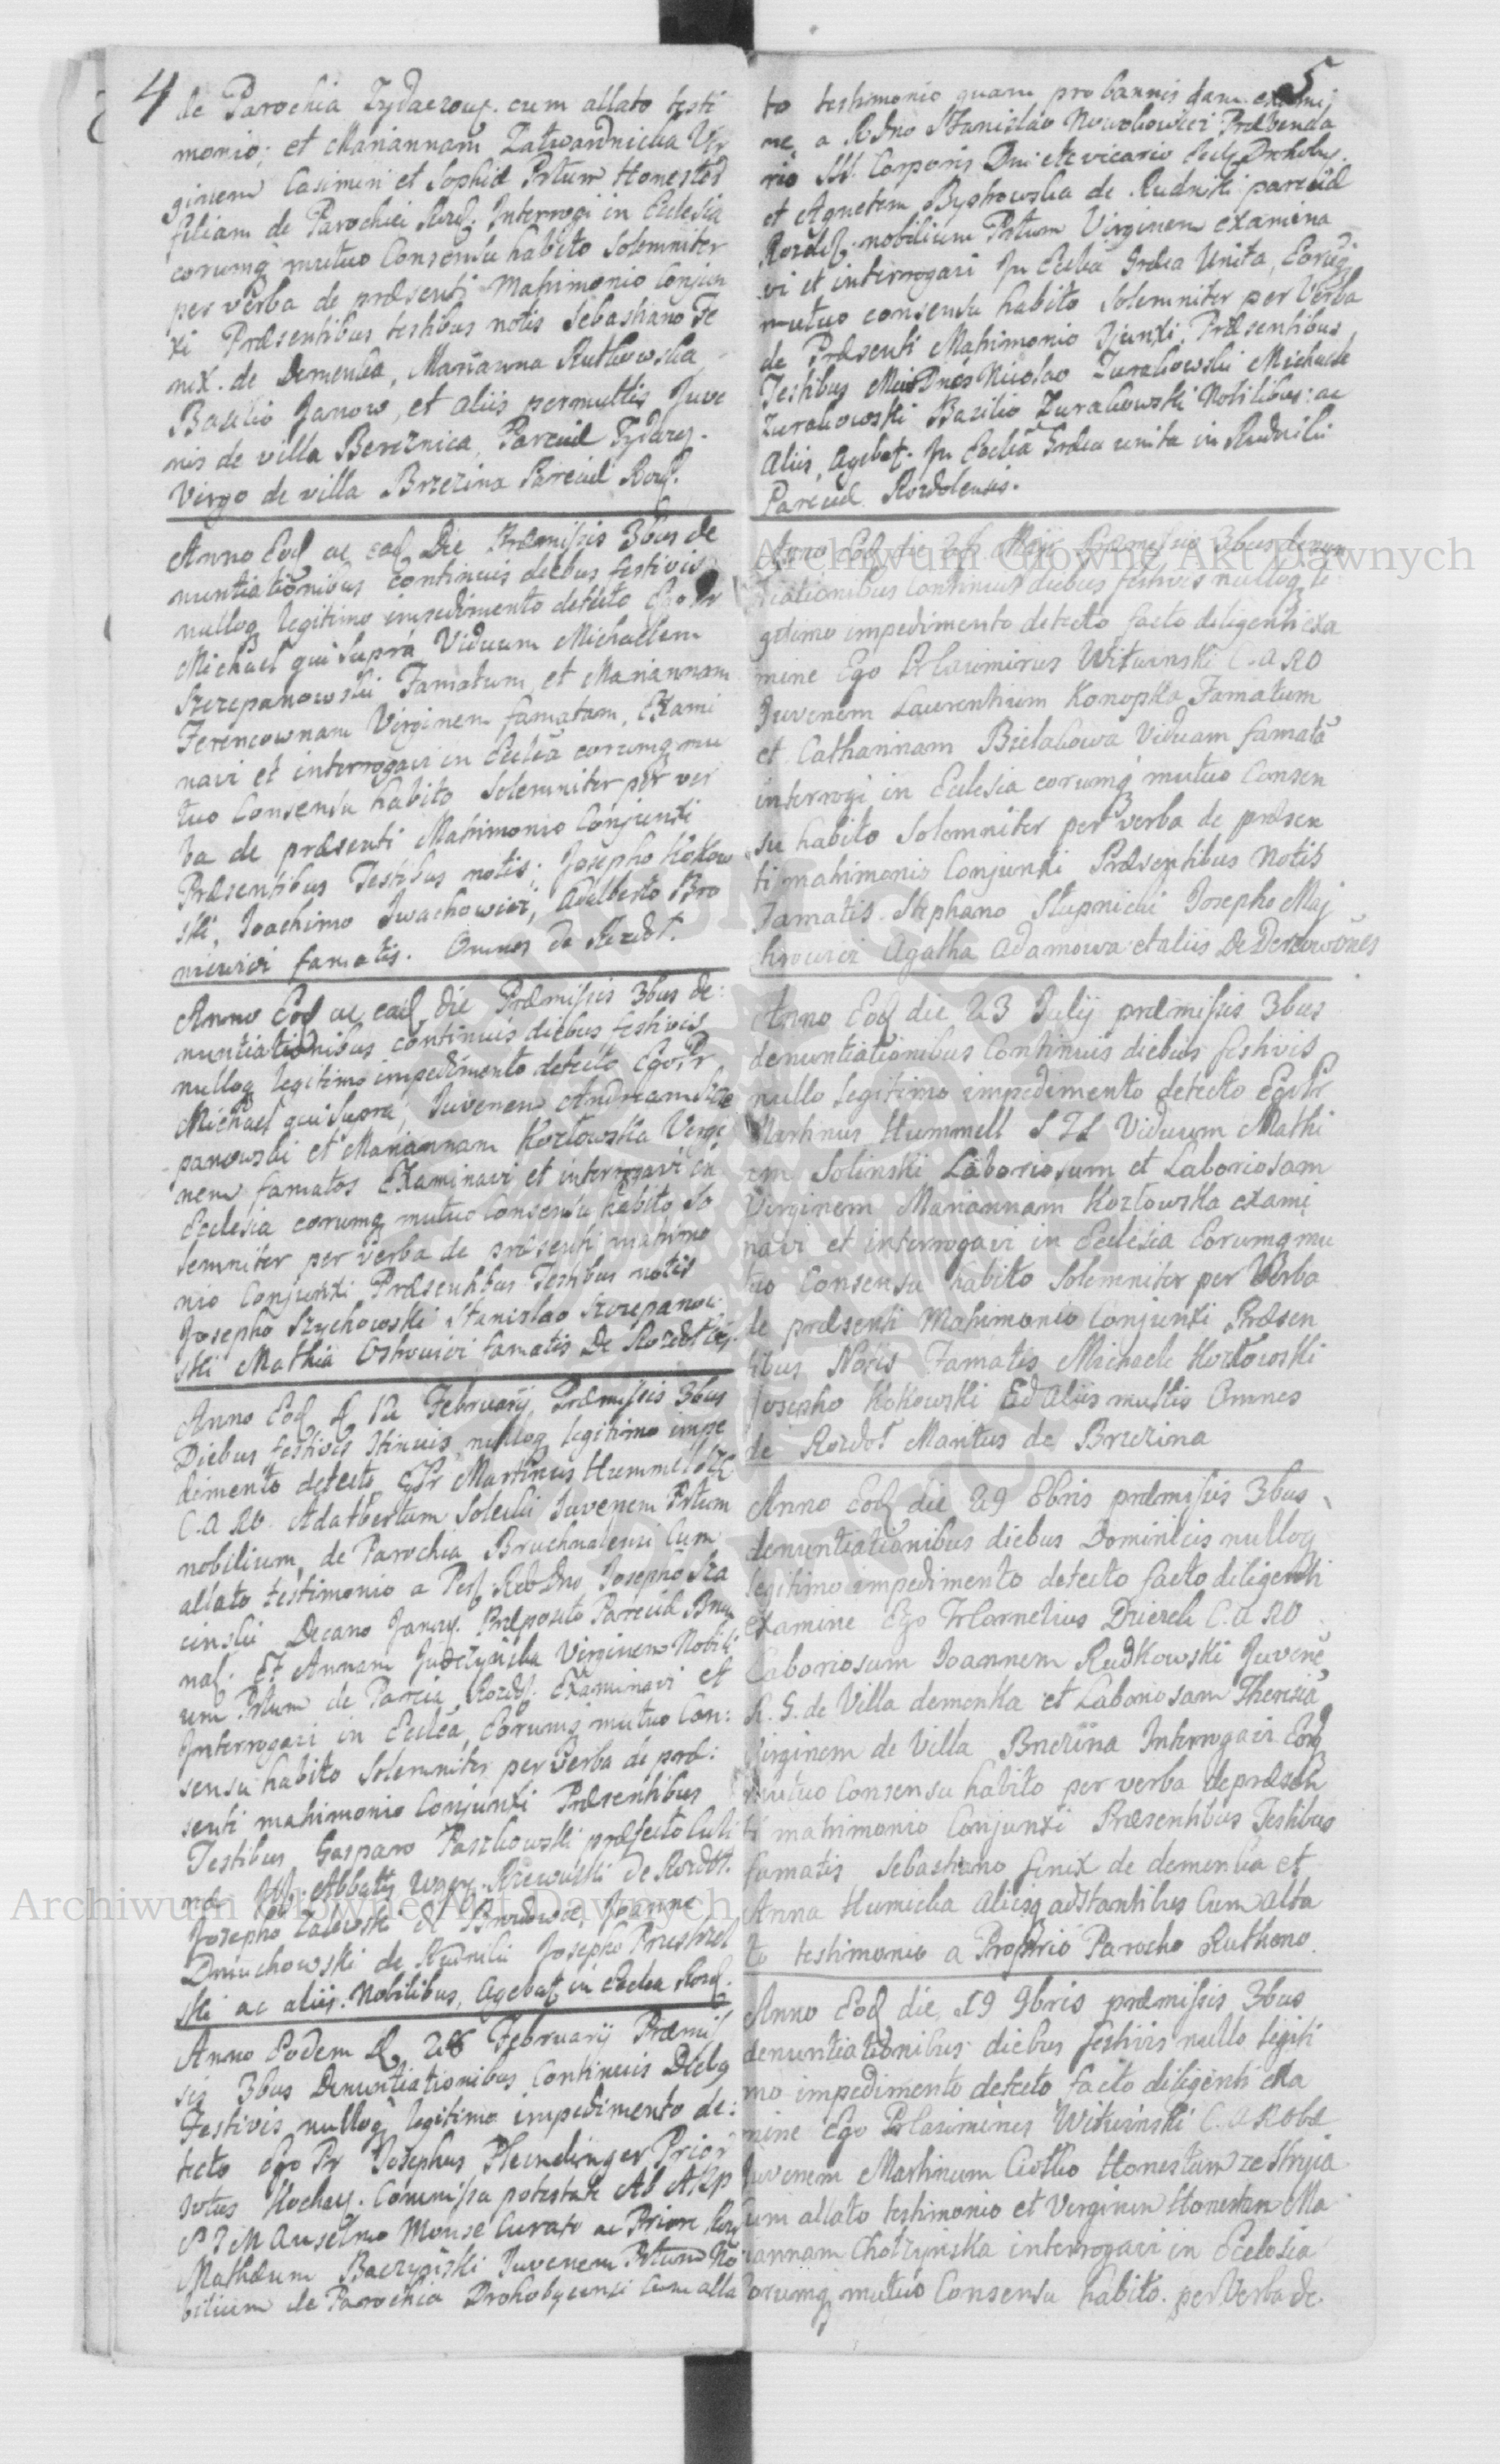 4
de Parochia Zydaczouq. cum allato testi
monio; et Mariannam Zatwardnicka Vir
ginem Casimiri et Sophiæ Prtum Honestos
filiam de Parochiei Rozd. Interrogi in Ecclesia
corumq mutuo Consensu habito Solemniter
per verba de præsenti Matrimonio Conjun
xi Præsentibus testibus notis Sebastiano Fe
nix. de Demenka, Marianna Rutkowska
Basilio Janow, et aliis permultis Juve
nis de villa Bereznica, Parciæ Zydacz.
Virgo de villa Brzezina Parciæ Rozd.
Anno Eod ac ead Die Præmissis 3bus de
nuntiationibus continuis diebus festivis
nulloq legitimo impedimento detecto Ego Fr
Michael qui supra Viduum Michaelem
Szczepanowski Famatum, et Mariannam
Ferencownam Virginem famatam, Exami
navi et interrogavi in Ecclea eorumq mu
tuo Consensu habito Solemniter per ver
ba de præsenti Matrimonio Conjunxi
Præsentibus Testibus notis; Josepho Kokow
ski, Joachimo Iwachowicz, Adalberto Bro
niewicz famatis. Omnes de Rozdoł.
Anno Eod ac ead die Præmissis 3bus de:
nuntiationibus continuis diebus festivis
nulloq legitimo impedimento detecto Ego Fr
Michael qui Supra, Juvenem Andream Szcze
panowski et Mariannam Kozłowska Virgi
nem famatos Examinavi et interrogavi in
Ecclesia eorumq mutuo Consensu habito So
lemniter per verba de præsenti matrimo
nio Conjunxi Præsentibus Testibus notis
Josepho Szychowski Stanislao Szczepanow
ski Mathia Ostrowicz famatis De Rozdoł
Anno Eod d 12 Februarij Præmissis 3bus
Diebus festivis Stinuis nulloq legitimo impe
dimento detecto E Fr Martinus Hummell
C.A RO. Adalbertum Solecki Juvenem Prtum
nobilium, de Parochia Bruchnalensi Cum
allato testimonio a Per Rdo Dno Josepho Sza
cinski Decano Janov. Præposito Parciæ Bruch
nal. Et Annam Virginem Nobili
um Prtum de Parcia Rozdł. Examinavi et
Interrogavi in Ecclea, Eorumq mutuo Con:
sensu habito Solemniter per Verba de præ:
senti matrimonio Conjunxi Præsentibus
Testibus Gasparo Paszkowski præfecto Culi
næ Abbatis Rzewuski de Rozdoł.
Josepho Zalewski d Joanne
Dmuchowski de Rudniki Josepho
ski ac aliis. Nobilibus, agebat in Ecclea Rozd.
Anno Eodem d 28 Februarij Præmis
sis 3bus Denuntiationibus Continuis Diebq
Festivis nulloq legitimo impedimento de:
tecto Ego Fr Josephus Pleindinger Prior
Kochav. Commissa potestate Ab
Anselmo Mouse Curato ac Priore Roz
Mathæum Baczynski Juvenem Prtum No
bilium de Parochia Drohobycensi Cum alla
5
to testimonio quam pro bannis dam. exami
ne, a Rdno Stanislao Nowohowicz Præbenda
rio SS. Corporis Dni ete vicario Drohoby.
et Agnetem Bystrowska de Rudniki parciæ
Rozdł. nobilium Prtum Virginem examina
vi et interrogavi In Ecclea Græca Unita, Eorumq
mutuo consensu habito Solemniter per Verba
de Præsenti Matrimonio Sjunxi, Præsentibus
Testibus Nicolao Zurakowski Michaele
Zurakowski Bazilio Zurakowski Nobilibus: ac
Aliis, Agebat. In Ecclea Græca unita in Rudniki
Parciæ Rozdolensis.
Anno Eod die 25 Maji Præmissis 3bus denun
tiationibus Continuis diebus festivis nulloq le
gitimo impedimento detecto facto diligenti exa
mine Ego Fr Casimirus Witwinski C.A RO
Juvenem Laurentium Konopka Famatum
et Catharinam Bielakowa Viduam famatã
interrogi in Ecclesia eorumq mutuo Consen
su habito Solemniter per verba de præsen
ti matrimonio Conjunxi Præsentibus Notis
Famatis Stephano Stupnicki Josepho Maj
Agatha Adamowa et aliis De
Anno Eod die 23 Julij præmissis 3bus
denuntiationibus Continuis diebus festivis
nullo legitimo impedimento detecto Ego Fr
Martinus Hummell S T L Viduum Mathi
am Solinski Laboriosum et Laboriosam
Virginem Mariannam Kozłowska exami
navi et interrogavi in Ecclesia Eorumq mu
tuo Consensu habito Solemniter per Verba
de præsenti Matrimonio Conjunxi Præsen
tibus Notis Famatis Michaele Kozłowski
Josepho Kokowski Ed aliis multis Omnes
de Rozdoł Maritus de Brzezina
Anno Eod die 29 8bris præmissis 3bus
denuntiationibus diebus Dominicis nulloq
legitimo impedimento detecto facto diligenti
examine Ego Fr Cornelius Dzierek C.A RO
Laboriosum Joannem Rudkowski Juvenẽ
R. G. de Villa demenka et Laboriosam Theresiã
Virginem de Villa Brzezina Interrogavi Eorq
mutuo Consensu habito per verba de præsen
ti matrimonio Conjunxi Præsentibus Testibus
famatis Sebastiano fenix de demenka et
Anna Humicka aliisq adstantibus Cum alla
to testimonio a Proprio Parocho Ruthono.
Anno Eod die 19 9bris præmissis 3bus
denuntiationibus diebus festivis nullo legiti
mo impedimento detecto facto diligenti exa
mine Ego Fr Casimires Witwinski C.A RO
Juvenem Martinum Honestum ze Stryia
cum allato testimonio et Virginem Honestam Ma
riannam Chołzynska interrogavi in Ecclesia
Eorumq mutuo Consensu habito. per Verba de.
Archiwum Główne Akt Dawnych
Archiwum Główne Akt Dawnych